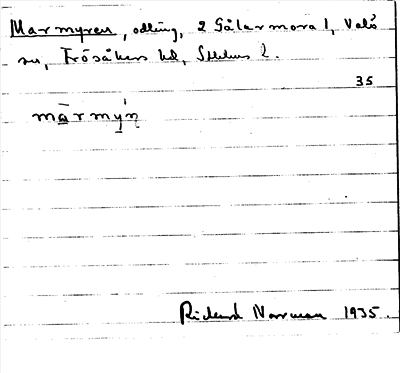 Marmyren, odling, 2 Gålarmora 1, Valö
sn, Frösåkers hd, Sthlms l.
35
màrmýn̥
Rickard Norrman 1935.